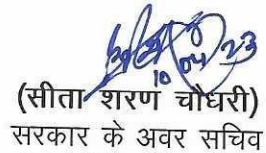 10/04/23
(सीता शरण चौधरी)
सरकार के अवर सचिव